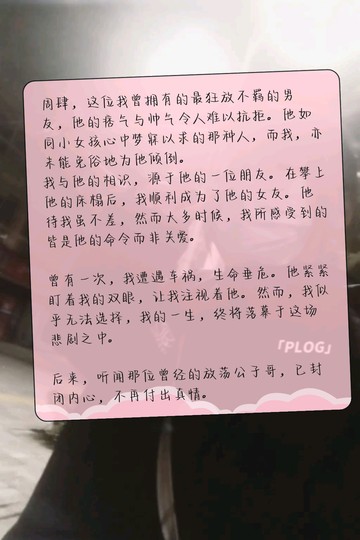 周肆，这位我曾拥有的最狂放不羁的男
友，他的痞气与帅气令人难以抗拒。他如
同小女孩心中梦寐以求的那种人，而我，亦
未能免俗地为他倾倒。
我与他的相识，源于他的一位朋友。在攀上
他的床榻后，我顺利成为了他的女友。他
待我虽不差，然而大多时候，我所感受到的
皆是他的命令而非关爱。
曾有一次，我遭遇车祸，生命垂危。他紧紧
盯着我的双眼，让我注视着他。然而，我似
乎无法选择，我的一生，终将落幕于这场
悲剧之中。
「PLOG」
后来，听闻那位曾经的放荡公子哥，已封
闭内心，不再付出真情。